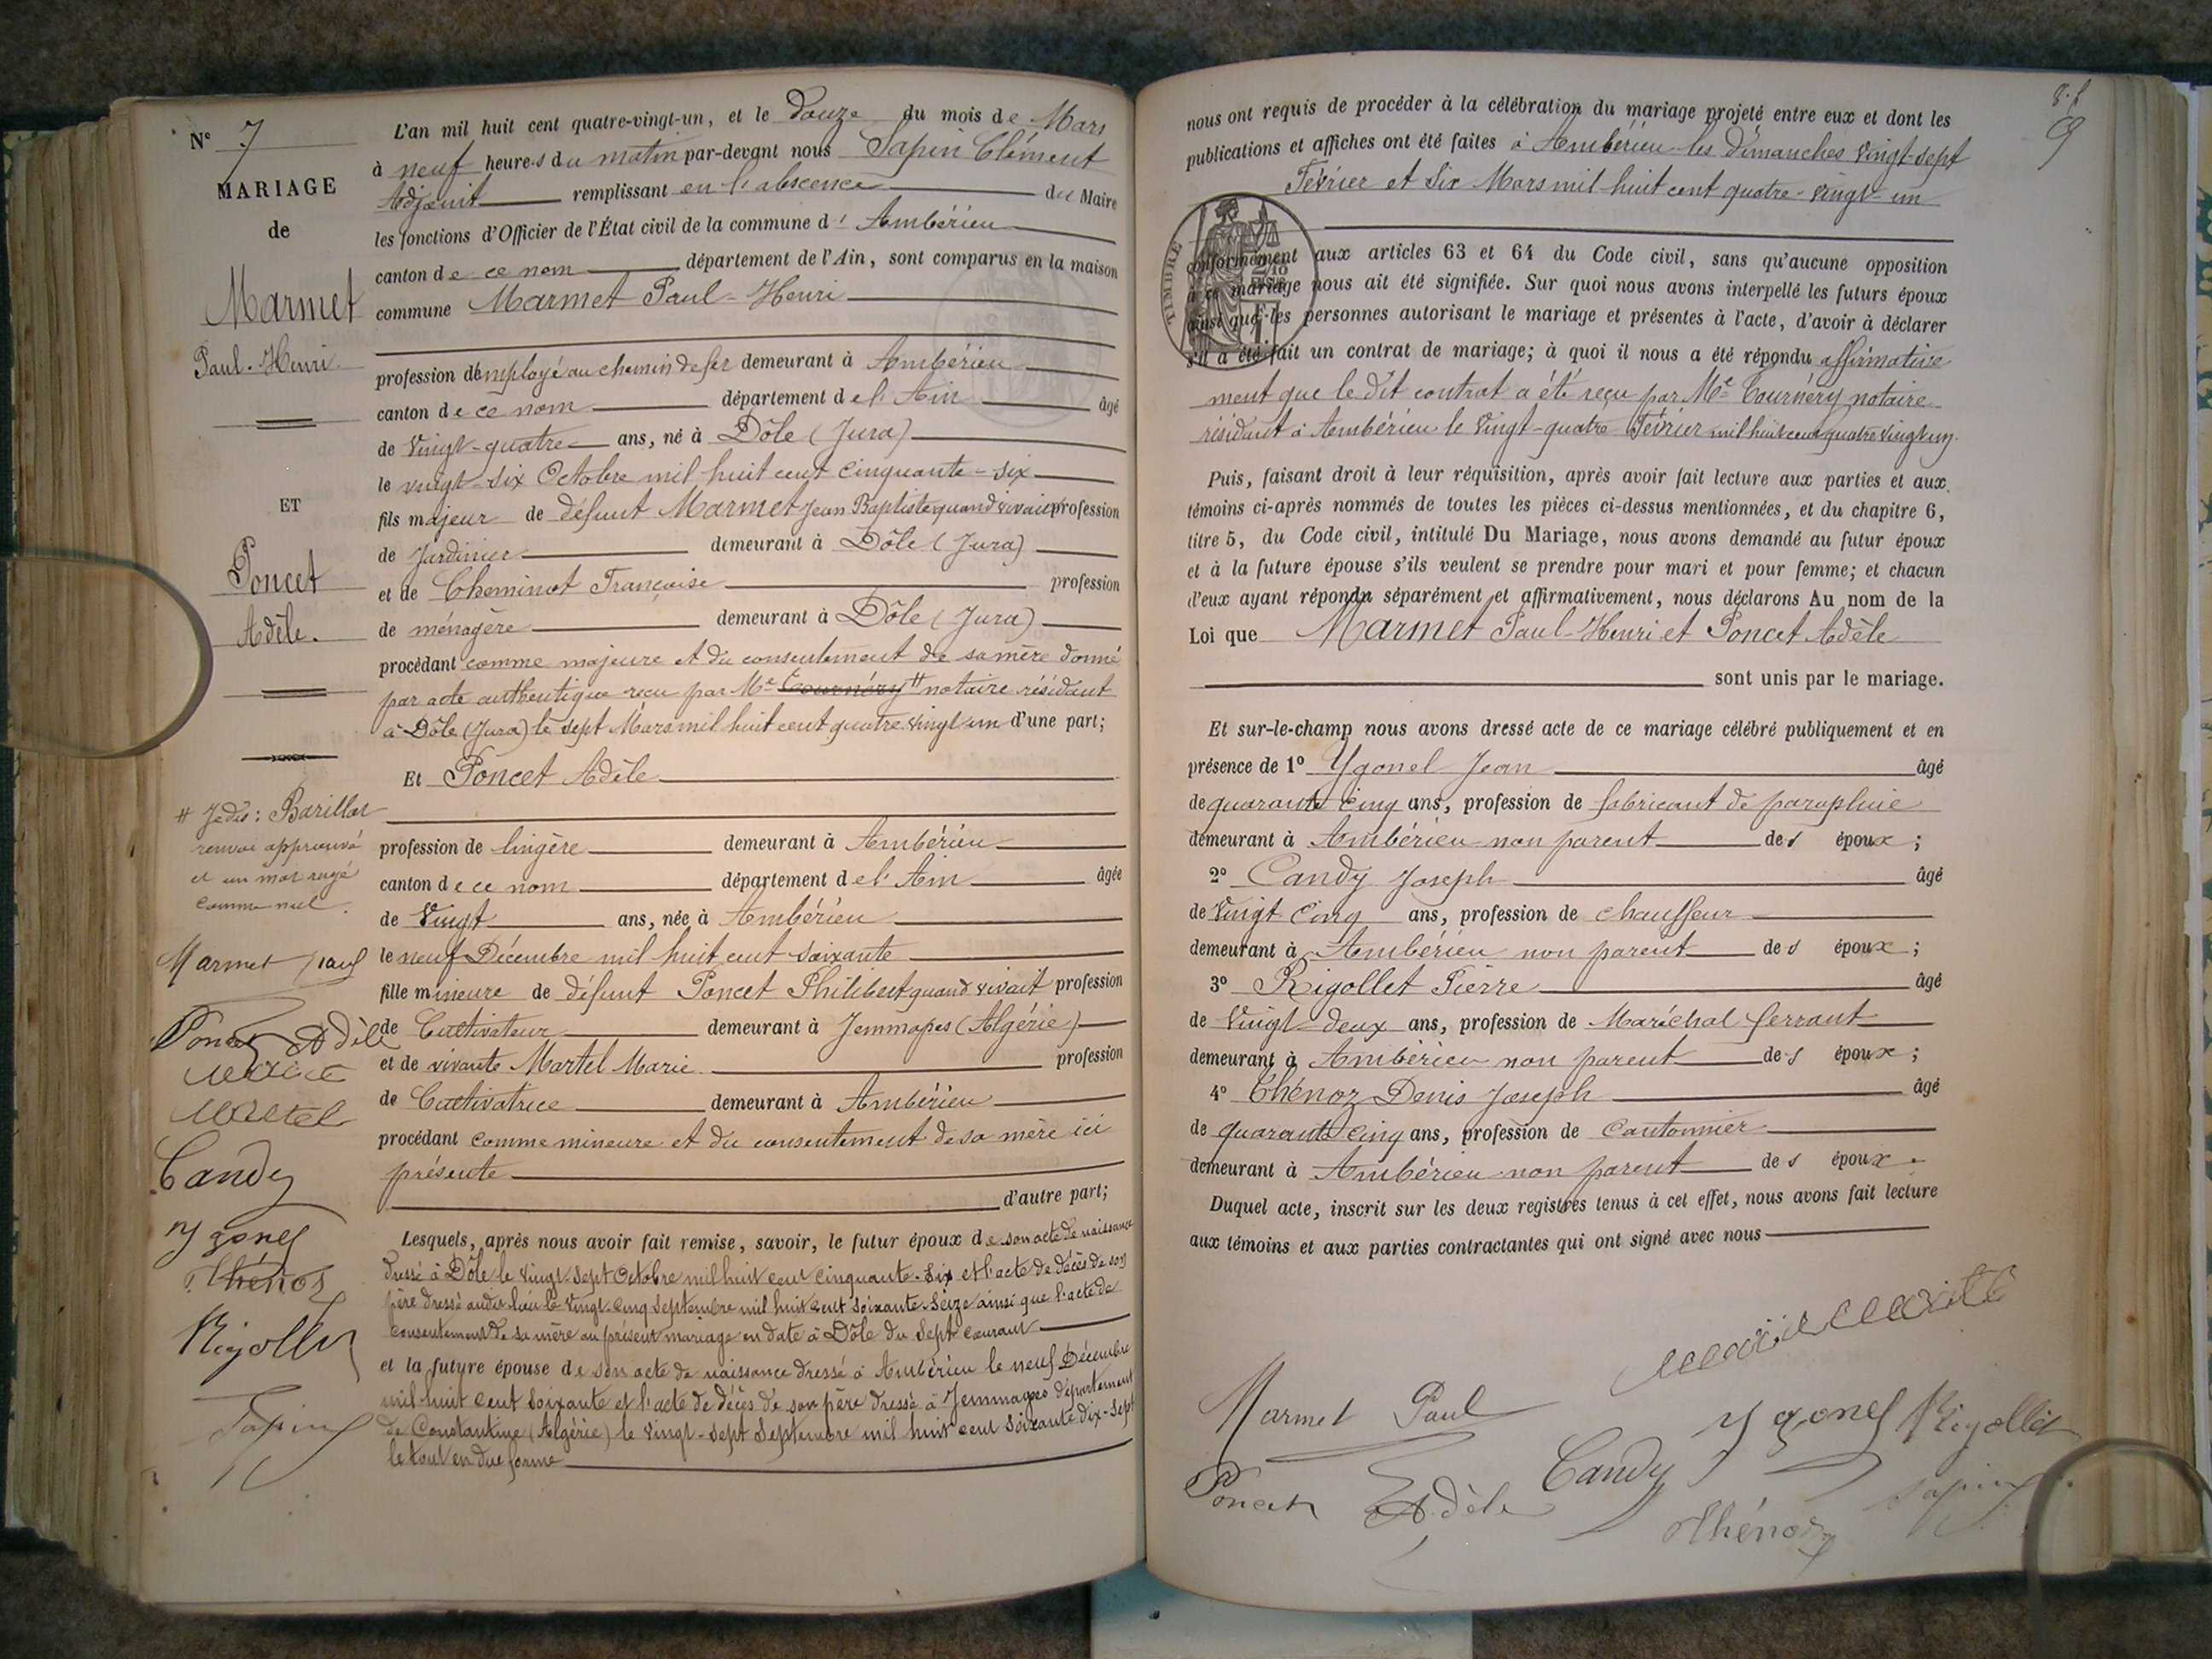 N° 7
MARIAGE
de
Marmet
Paul-Henri
ET
Poncet
Adèle.
# Je dis: Barillot
renvoi approuvé
et un mot rayé
comme nul.
Marmet Paul
Poncet Adèle
Marie
Martel
Candy
Ygonel
Thénoz
Rigollet
Sapin
L'an mil huit cent quatre-vingt-un, et le Douze du mois de Mars
à neuf heures du matin par-devant nous Sapin Clément
Adjoint remplissant en l'abscence du Maire
les fonctions d'Officier de l'État civil de la commune d' Ambérieu
canton de ce nom département de l'Ain, sont comparus en la maison
commune Marmet Paul-Henri
profession d'employé au chemin de fer demeurant à Ambérieu
canton de ce nom département de l'Ain âgé
de Vingt-quatre ans, né à Dôle (Jura)
le vingt-six Octobre mil huit cent cinquante-six
fils majeur de défunt Marmet Jean Baptiste quand vivait profession
de Jardinier demeurant à Dôle (Jura)
et de Cheminot Françoise profession
de ménagère demeurant à Dôle (Jura)
procédant comme majeure et du consentement de sa mère donné
par acte authentique reçu par Me Tournéry # notaire résidant
à Dôle (Jura) le sept Mars mil huit cent quatre vingt un d'une part;
Et Poncet Adèle
profession de lingère demeurant à Ambérieu
canton de ce nom département de l'Ain âgée
de Vingt ans, née à Ambérieu
le neuf Décembre mil huit cent soixante
fille mineure de défunt Poncet Philibert quand vivait profession
de Cultivateur demeurant à Jemmapes (Algérie)
et de vivante Martel Marie profession
de Cultivatrice demeurant à Ambérieu
procédant comme mineure et du consentement de sa mère ici
présente
d'autre part;
Lesquels, après nous avoir fait remise, savoir, le futur époux de son acte de naissance
dressé à Dôle le vingt-sept Octobre mil huit cent cinquante-six et l'acte de décès de son
père dressé audit lieu le vingt-cinq Septembre mil huit cent soixante-seize ainsi que l'acte de
consentement de sa mère au présent mariage en date à Dôle du Sept courant
et la future épouse de son acte de naissance dressé à Ambérieu le neuf Décembre
mil huit cent soixante et l'acte de décès de son père dressé à Jemmapes département
de Constantine (Algérie) le vingt-sept Septembre mil huit cent soixante dix-sept
le tout en due forme
9
nous ont requis de procéder à la célébration du mariage projeté entre eux et dont les
publications et affiches ont été faites à Ambérieu les dimanches vingt-sept
Février et Six Mars mil huit cent quatre-vingt-un
TIMBRE
conformément aux articles 63 et 64 du Code civil, sans qu'aucune opposition
à ce mariage nous ait été signifiée. Sur quoi nous avons interpellé les futurs époux
ainsi que les personnes autorisant le mariage et présentes à l'acte, d'avoir à déclarer
s'il a été fait un contrat de mariage; à quoi il nous a été répondu affirmative
ment que le dit contrat a été reçu par Me Tournéry notaire
résidant à Ambérieu le Vingt-quatre Février mil huit cent quatre vingt un.
Puis, faisant droit à leur réquisition, après avoir fait lecture aux parties et aux
témoins ci-après nommés de toutes les pièces ci-dessus mentionnées, et du chapitre 6,
titre 5, du Code civil, intitulé Du Mariage, nous avons demandé au futur époux
et à la future épouse s'ils veulent se prendre pour mari et pour femme; et chacun
d'eux ayant répondu séparément et affirmativement, nous déclarons Au nom de la
Loi que Marmet Paul-Henri et Poncet Adèle
sont unis par le mariage.
Et sur-le-champ nous avons dressé acte de ce mariage célébré publiquement et en
présence de 1° Ygonel Jean âgé
de quarante cinq ans, profession de fabricant de parapluie
demeurant à Ambérieu non parent des époux;
2° Candy Joseph âgé
de Vingt Cinq ans, profession de chauffeur
demeurant à Ambérieu non parent des époux;
3° Rigollet Pierre âgé
de Vingt-deux ans, profession de Maréchal ferrant
demeurant à Ambérieu non parent des époux;
4° Thénoz Denis Joseph âgé
de quarante cinq ans, profession de Cantonnier
demeurant à Ambérieu non parent des époux.
Duquel acte, inscrit sur les deux registres tenus à cet effet, nous avons fait lecture
aux témoins et aux parties contractantes qui ont signé avec nous
Marmet Paul
Ygonel Rigollet
Poncet Adèle Candy
Thénoz Sapin